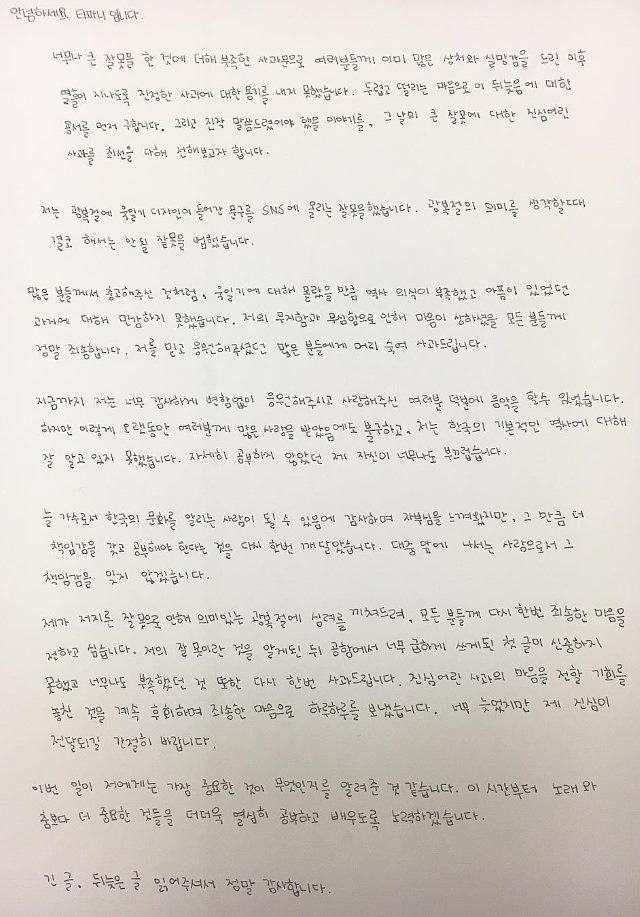 안녕하세요 티파니 입니다.
너무나 큰 잘못을 한 것에 더해 부족한 사과문으로 여러분들께 이미 많은 상처와 실망감을 드린 이후
열흘이 지나도록 진정한 사과에 대한 용기를 내지 못했습니다. 두렵고 떨리는 마음으로 이 뒤늦음에 대한
용서를 먼저 구합니다. 그리고 진작 말씀드렸어야 했을 이야기를, 그 날의 큰 잘못에 대한 진심어린
사과를 최선을 다해 전해보고자 합니다.
저는 광복절에 욱일기 디자인이 들어간 문구를 SNS에 올리는 잘못을 했습니다. 광복절의 의미를 생각할때
결코 해서는 안될 잘못을 범했습니다.
많은 분들께서 충고해주신 것처럼, 욱일기에 대해 몰랐을 만큼 역사 의식이 부족했고 아픔이 있었던
과거에 대해 민감하지 못했습니다. 저의 무지함과 무심함으로 인해 마음이 상하셨을 모든 분들께
정말 죄송합니다. 저를 믿고 응원해주셨던 많은 분들에게 머리 숙여 사과드립니다.
지금까지 저는 너무 감사하게 변함없이 응원해주시고 사랑해주신 여러분 덕분에 음악을 할수 있었습니다.
하지만 이렇게 오랫동안 여러분께 많은 사랑을 받았음에도 불구하고, 저는 한국의 기본적인 역사에 대해
잘 알고 있지 못했습니다. 자세히 공부하지 않았던 제 자신이 너무나도 부끄럽습니다.
늘 가수로서 한국의 문화를 알리는 사람이 될 수 있음에 감사하며 자부심을 느껴왔지만, 그 만큼 더
책임감을 갖고 공부해야 한다는 것을 다시 한번 깨달았습니다. 대중 앞에 나서는 사람으로서 그
책임감을 잊지 않겠습니다.
제가 저지른 잘못으로 인해 의미있는 광복절에 심려를 끼쳐드려, 모든 분들께 다시 한번 죄송한 마음을
전하고 싶습니다. 저의 잘 못이란 것을 알게된 뒤 공항에서 너무 급하게 쓰게된 첫 글이 신중하지
못했고 너무나도 부족했던 것 또한 다시 한번 사과드립니다. 진심어린 사과의 마음을 전할 기회를
놓친 것을 계속 후회하며 죄송한 마음으로 하루하루를 보냈습니다. 너무 늦었지만 제 진심이
전달되길 간절히 바랍니다.
이번 일이 저에게는 가장 중요한 것이 무엇인지를 알려준 것 같습니다. 이 시간부터 노래와
춤보다 더 중요한 것들을 더더욱 열심히 공부하고 배우도록 노력하겠습니다.
긴 글, 뒤늦은 글 읽어주셔서 정말 감사합니다.